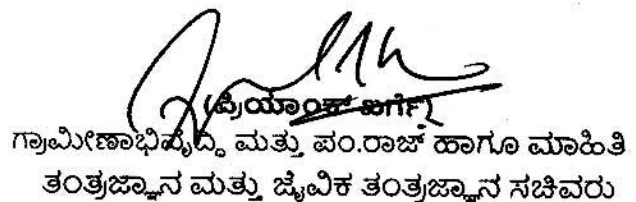 (ಪ್ರಿಯಾಂಕ್ ಖರ್ಗೆ)
ಗ್ರಾಮೀಣಾಭಿವೃದ್ಧಿ ಮತ್ತು ಪಂ.ರಾಜ್ ಹಾಗೂ ಮಾಹಿತಿ
ತಂತ್ರಜ್ಞಾನ ಮತ್ತು ಜೈವಿಕ ತಂತ್ರಜ್ಞಾನ ಸಚಿವರು